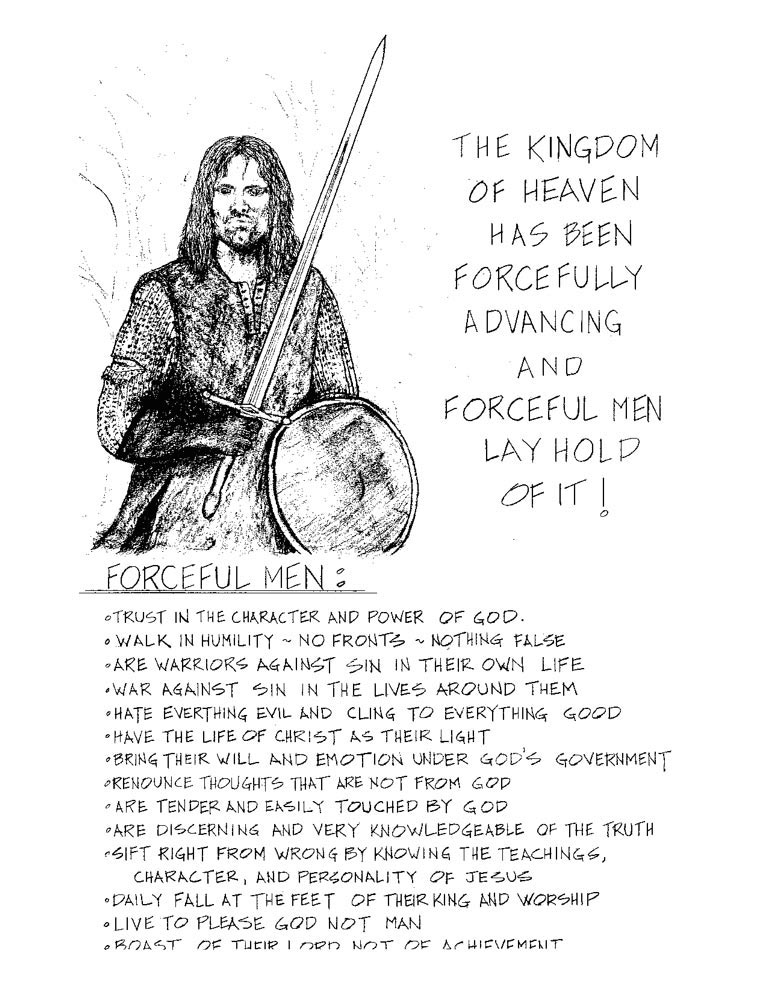 THE KINGDOM
OF HEAVEN
HAS BEEN
FORCEFULLY
ADVANCING
AND
FORCEFUL MEN
LAY HOLD
OF IT!
FORCEFUL MEN:
•TRUST IN THE CHARACTER AND POWER OF GOD.
•WALK IN HUMILITY ~ NO FRONTS ~ NOTHING FALSE
•ARE WARRIORS AGAINST SIN IN THEIR OWN LIFE
•WAR AGAINST SIN IN THE LIVES AROUND THEM
•HATE EVERTHING EVIL AND CLING TO EVERYTHING GOOD
•HAVE THE LIFE OF CHRIST AS THEIR LIGHT
•BRING THEIR WILL AND EMOTION UNDER GOD'S GOVERNMENT
•RENOUNCE THOUGHTS THAT ARE NOT FROM GOD
•ARE TENDER AND EASILY TOUCHED BY GOD
•ARE DISCERNING AND VERY KNOWLEDGEABLE OF THE TRUTH
•SIFT RIGHT FROM WRONG BY KNOWING THE TEACHINGS,
CHARACTER, AND PERSONALITY OF JESUS
•DAILY FALL AT THE FEET OF THEIR KING AND WORSHIP
•LIVE TO PLEASE GOD NOT MAN
•BOAST OF THEIR LORD NOT OF ACHIEVEMENT